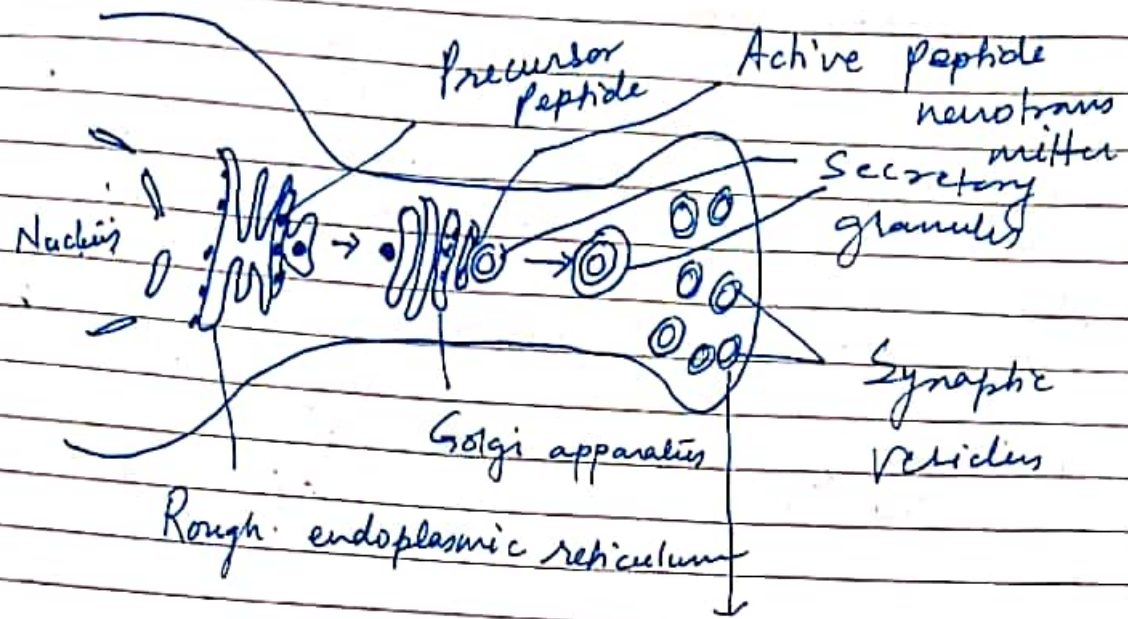 Precursor
Peptide
Active Peptide
neurotrans
mitter
Secretory
granules
Nucleus
Synaptic
vesicles
Golgi apparatus
Rough endoplasmic reticulum